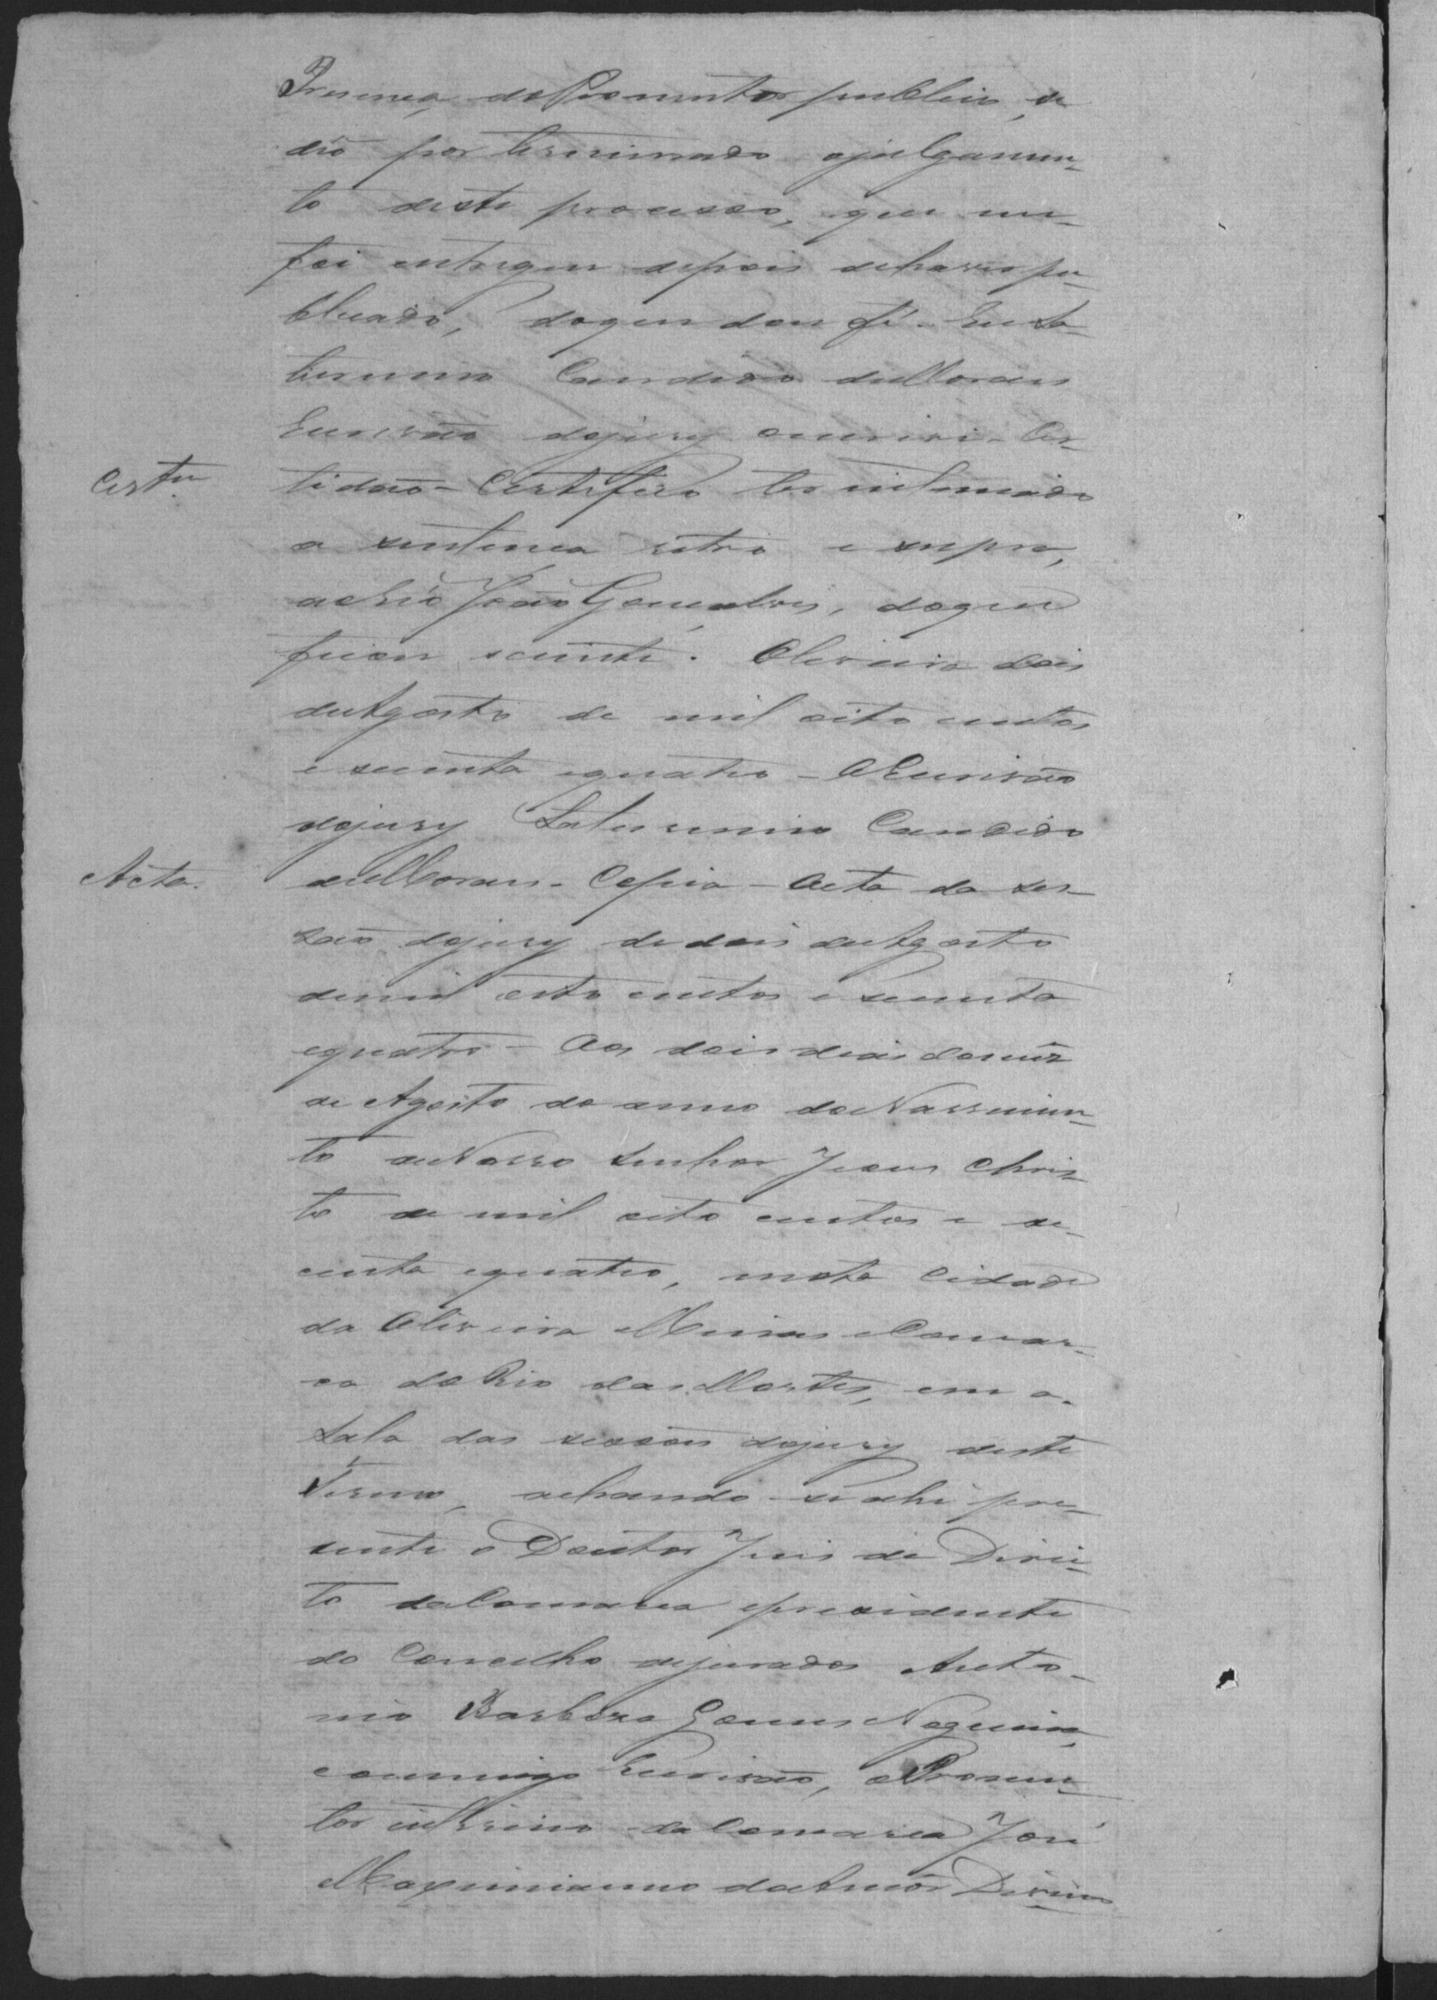 Presença do Promotor publico, se
deo por terminado ojulgamen-
to deste processo, que me
foi entregue depois dehaver pu-
blicado, doque dou fé. Eu Sa-
turnino Candido deMoraes
Escrivão dojury escrivi. Cer-
Certam
tidão - Certifico ter intimado
a sentença retro e supra,
aoRéo João Gonçalves, doque
ficou sciente. Oliveira dois
deAgosto de mil oito centos
e secenta equatro - OEscrivão
dojury Saturnino Candido
Acta.
deMoraes. Copia - Acta da ses-
são dojury de dois deAgosto
demil oito centos e secenta
equatro - Aos dois dias domêz
de Agosto do anno doNassimen-
to deNosso Senhor Jesus Chris-
to de mil oito centos e se-
centa equatro, nesta Cidade
da Oliveira Minas eComar-
ca doRio dasMortes, em a
Sala das sessões dojury deste
Termo, achando-se ahi pre-
sente o Doutor Juis de Direi-
to daComarca epresidente
do Concelho dejurados Anto-
nio Barbosa Gomes Nogueira,
commigo Escrivão, oPromo-
tor interino daComarca José
Maximianno